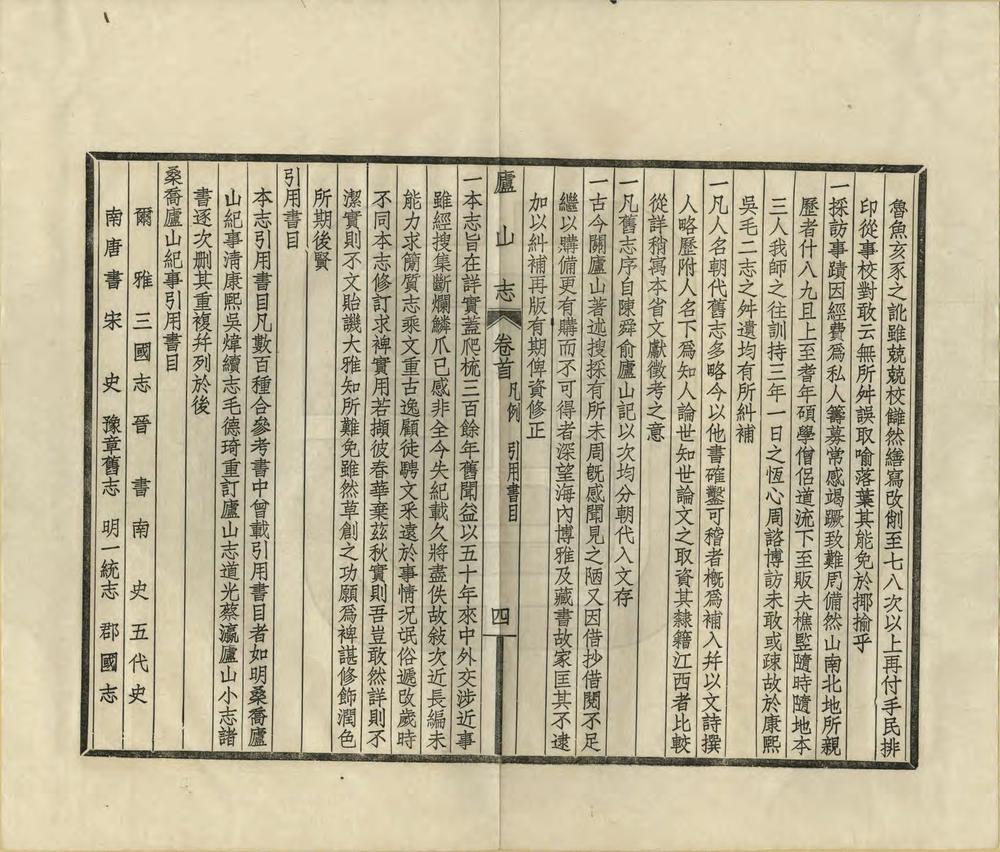 魯魚亥豕之訛雖兢兢校讎然繕寫改削至七八次以上再付手民排
印從事校對敢云無所舛誤取喻落葉其能免於揶揄乎
一採訪事蹟因經費爲私人籌募常感竭蹶致難周備然山南北地所親
歷者什八九且上至耆年碩學僧侶道流下至販夫樵豎隨時隨地本
三人我師之往訓持三年一日之恆心周諮博訪未敢或疎故於康熙
吳毛二志之舛遺均有所糾補
一凡人名朝代舊志多略今以他書確鑿可稽者槪爲補入幷以文詩撰
人略歷附人名下爲知人論世知世論文之取資其隸籍江西者比較
從詳稍寓本省文獻徵考之意
一凡舊志序自陳舜俞廬山記以次均分朝代入文存
一古今關廬山著述搜採有所未周旣感聞見之陋又因借抄借閱不足
繼以購備更有購而不可得者深望海內博雅及藏書故家匡其不逮
加以糾補再版有期俾資修正
廬山志 卷首 凡例 引用書目 四
一本志旨在詳實蓋爬梳三百餘年舊聞益以五十年來中外交涉近事
雖經搜集斷爛鱗爪已感非全今失紀載久將盡佚故敍次近長編未
能力求簡質志乘文重古逸顧徒騁文采遠於事情況氓俗遞改歲時
不同本志修訂求裨實用若擷彼春華棄茲秋實則吾豈敢然詳則不
潔實則不文貽譏大雅知所難免雖然草創之功願爲裨諶修飾潤色
所期後賢
引用書目
本志引用書目凡數百種合參考書中曾載引用書目者如明桑喬廬
山紀事清康熙吳煒續志毛德琦重訂廬山志道光蔡瀛廬山小志諸
書逐次删其重複幷列於後
桑喬廬山紀事引用書目
爾雅 三國志 晉書 南史 五代史
南唐書 宋史 豫章舊志 明一統志 郡國志